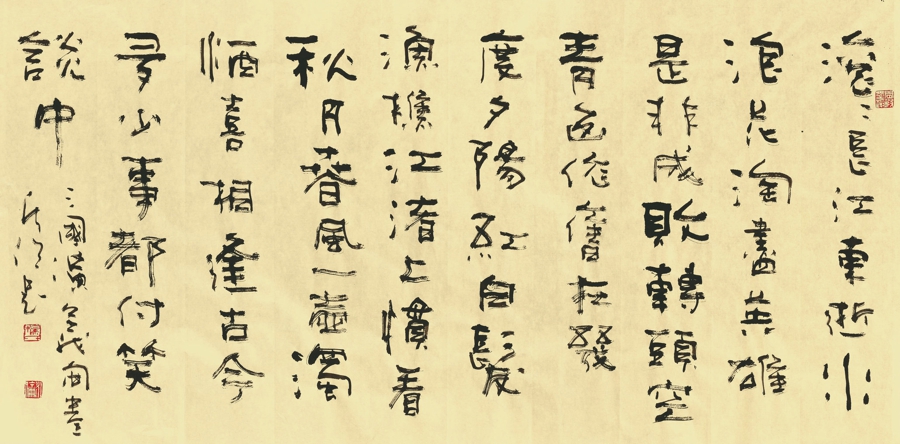 滚〻長江東逝水
浪花淘盡英雄
是非成敗轉頭空
青山依舊在幾
度夕陽紅白髮
漁樵江渚上慣看
秋月春風一壺濁
酒喜相逢古今
多少事都付笑
談中
三國演義開卷